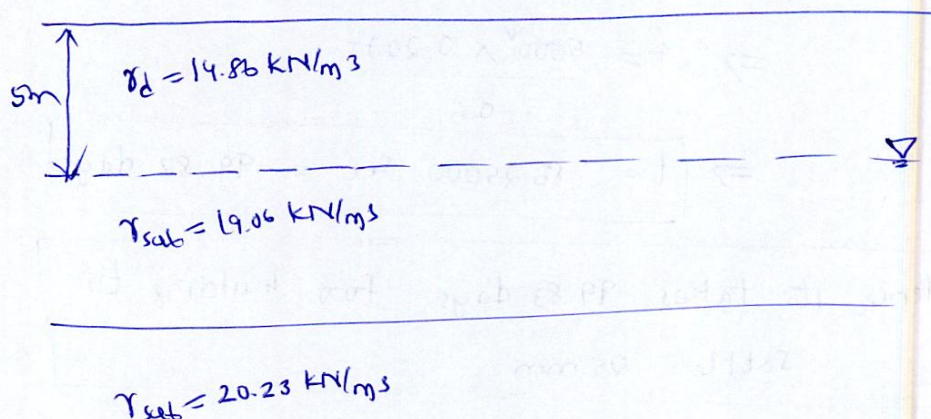 5m
γd = 14.86 KN/m3
γsat = 19.06 KN/m3
γsat = 20.23 KN/m3